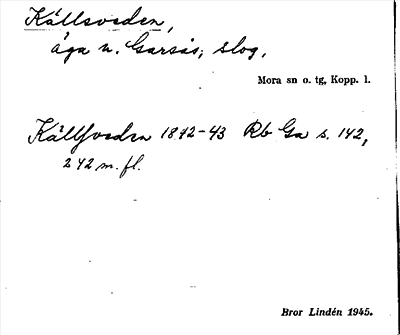 Källsveden,
äga n. Garsås; slog.
Mora sn o. tg, Kopp. l.
Källsveden 1842-43 Rb Ga s. 142,
242 m. fl.
Bror Lindén 1945.